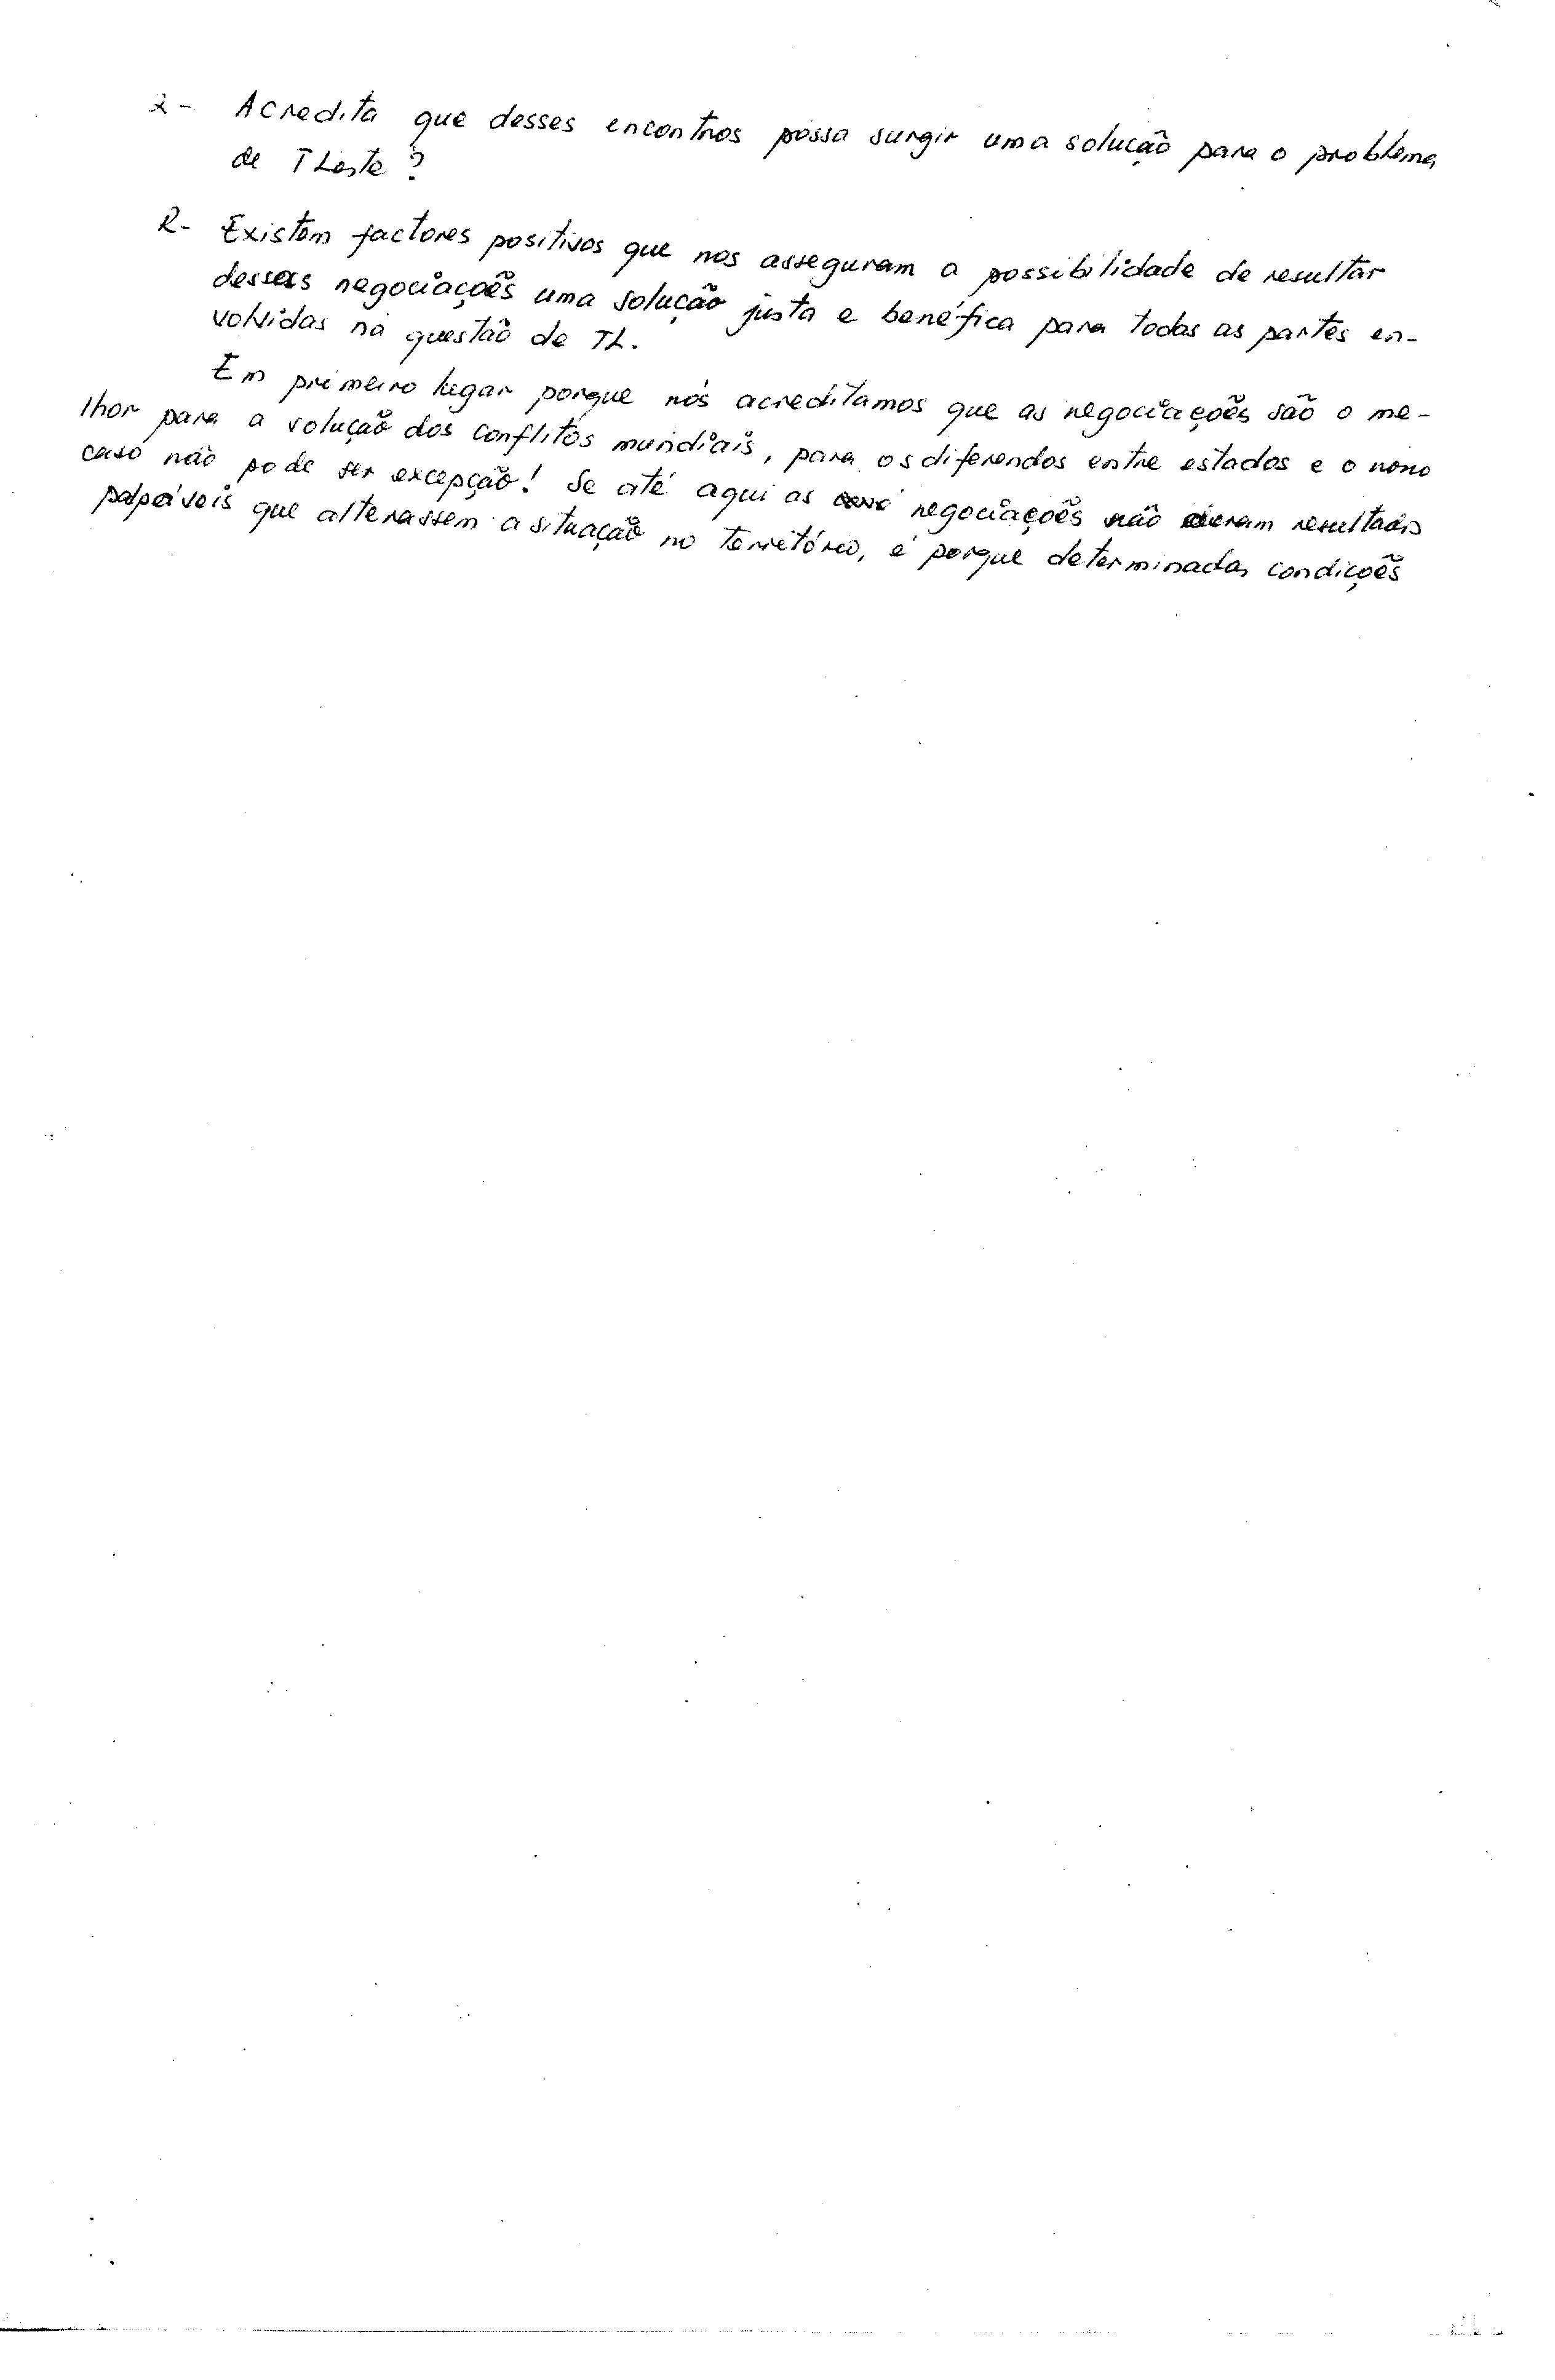 2- Acredita que desses encontros possa surgir uma solução para o problema
de TLeste?
R- Existem factores positivos que nos asseguram a possibilidade de resultar
dessas negociações uma solução justa e benéfica para todas as partes en-
volvidas na questão de TL.
Em primeiro lugar porque nós acreditamos que as negociações são o me-
lhor para a solução dos conflitos mundiais, para os diferendos entre estados e o nosso
caso não pode ser excepção! Se até aqui as negociações não deram resultados
palpáveis que alterassem a situação no território, é porque determinadas condições